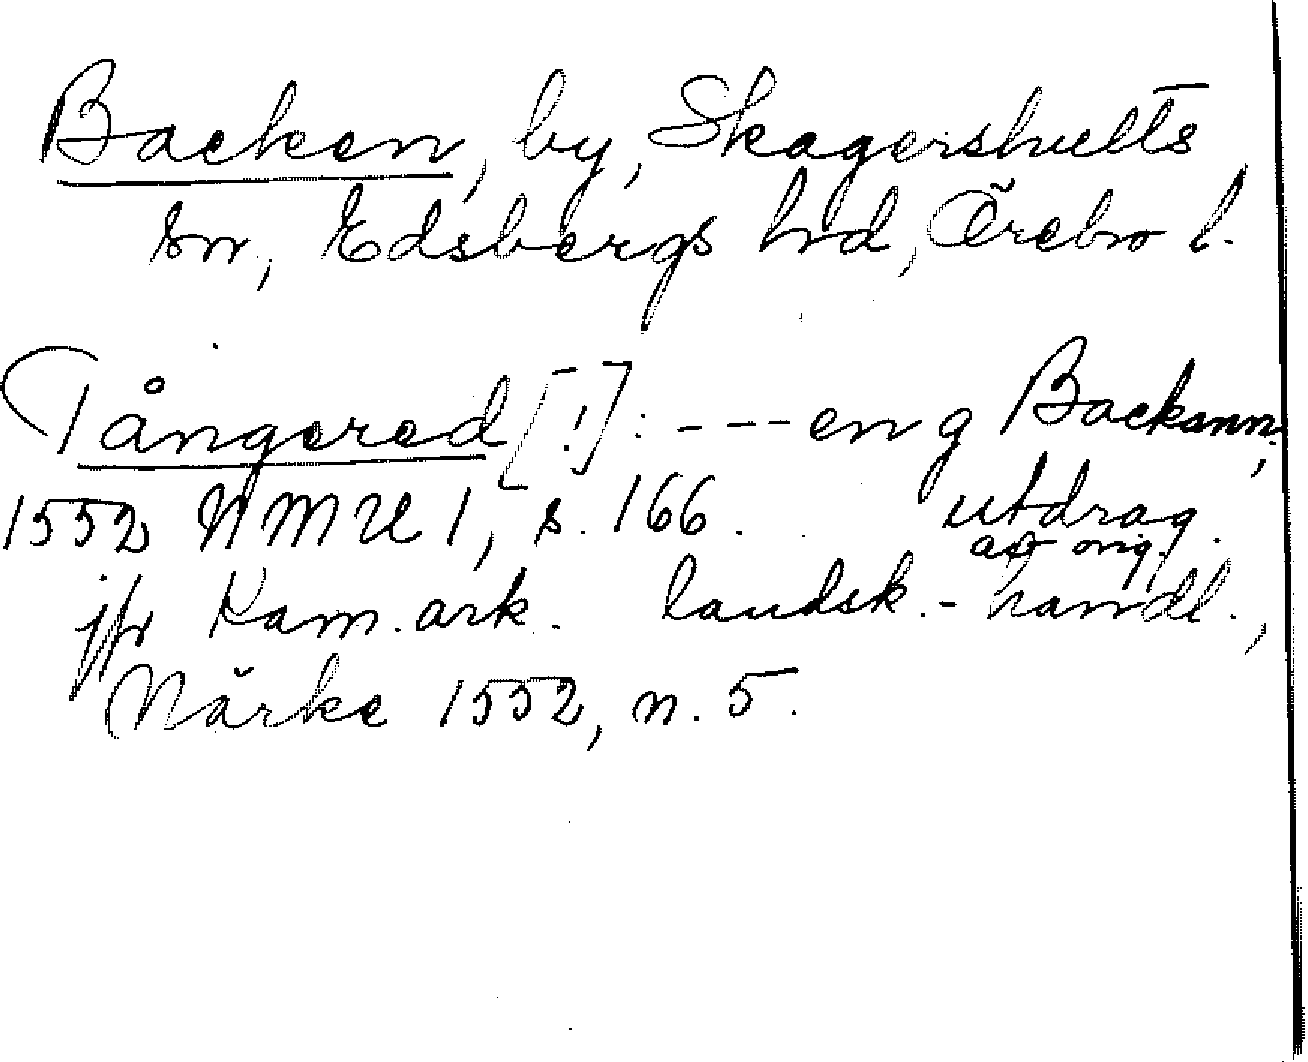 Backen, by, Skagershults
sn, Edsbergs hrd, Örebro l.
Tångered [!]: --- en g Backann;
1552 NMU 1, s. 166. utdrag
av orig.
jfr Kam.ark. landsk.-handl.,
Närke 1552, n. 5.